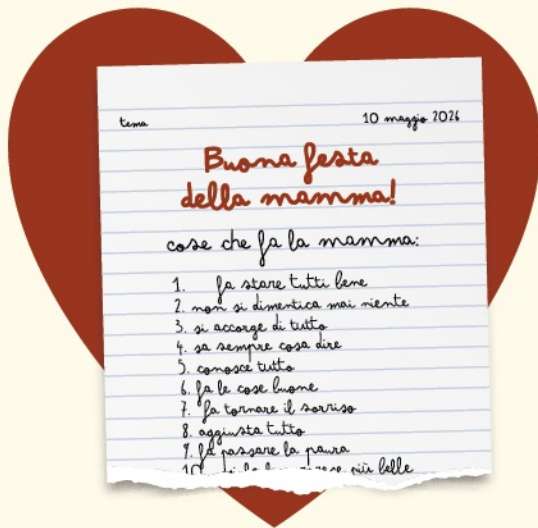 tema
10 maggio 2026
Buona festa
della mamma!
cose che fa la mamma:
1. fa stare tutti bene
2. non si dimentica mai niente
3. si accorge di tutto
4. sa sempre cosa dire
5. conosce tutto
6. fa le cose buone
7. fa tornare il sorriso
8. aggiusta tutto
9. fa passare la paura
10 più belle